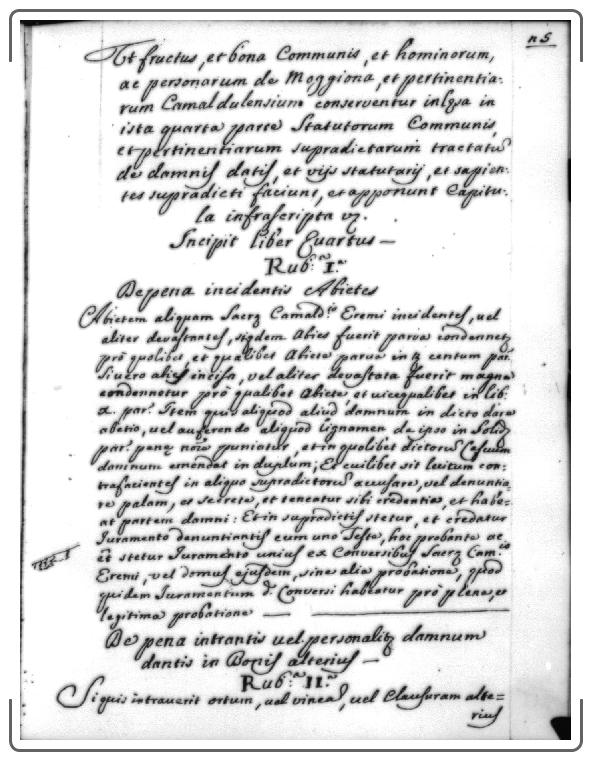 n5
Ut fructus, et bona Communis, et hominorum,
ac personarum de Moggiona, et pertinentia:
rum Camaldulensium conserventur in
ista quarta parte Statutorum Communis,
et pertinentiarum supradictarum tractatũ
de damnis datis, et vijs statutarij, et sapien:
tes supradicti faciunt, et apponunt Capitu:
la infrascripta vz.
Incipit liber Quartus —
Rub.ª I.ª
De pena incidentis Abietes
Abietem aliquam Camald.is Eremi incidentes, vel
aliter devastantes, Abies fuerit parva condennetʒ
prõ quolibet, et qualibet Abiete parva in centum par.
Si vero abies incisa, vel aliter devastata fuerit magna
condennetur prõ qualibet Abiete et vicequalibet in lib:
x. par. Item quis aliquod aliud damnum in dicto
abetio, vel auferendo aliquod lignamen de ipso in Solid
par. penę puniatur, et in quolibet dictorũ Casuum
damnum emendat in duplum; Et cuilibet sit licitum con:
trafacientes in aliquo supradictorũ accusare, vel denuntia:
re palam, et secrete, et teneatur sibi credentia, et habe:
at partem damni: Et in supradictis stetur, et credatur
Iuramento denuntiantis cum uno Teste, hoc probante ac
et stetur Iuramento unius ex Conversibus Cam.is
Eremi, vel domus ejusdem, sine alia probatione, quod
quidem Iuramentum d. Conversi habeatur prõ plena, et
legitima probatione —
De pena intrantis vel personalitʒ damnum
dantis in Bonis alterius —
Rub.ª II.ª
Si quis intraverit ortum, vel vineã, vel Clausuram alte=
rius